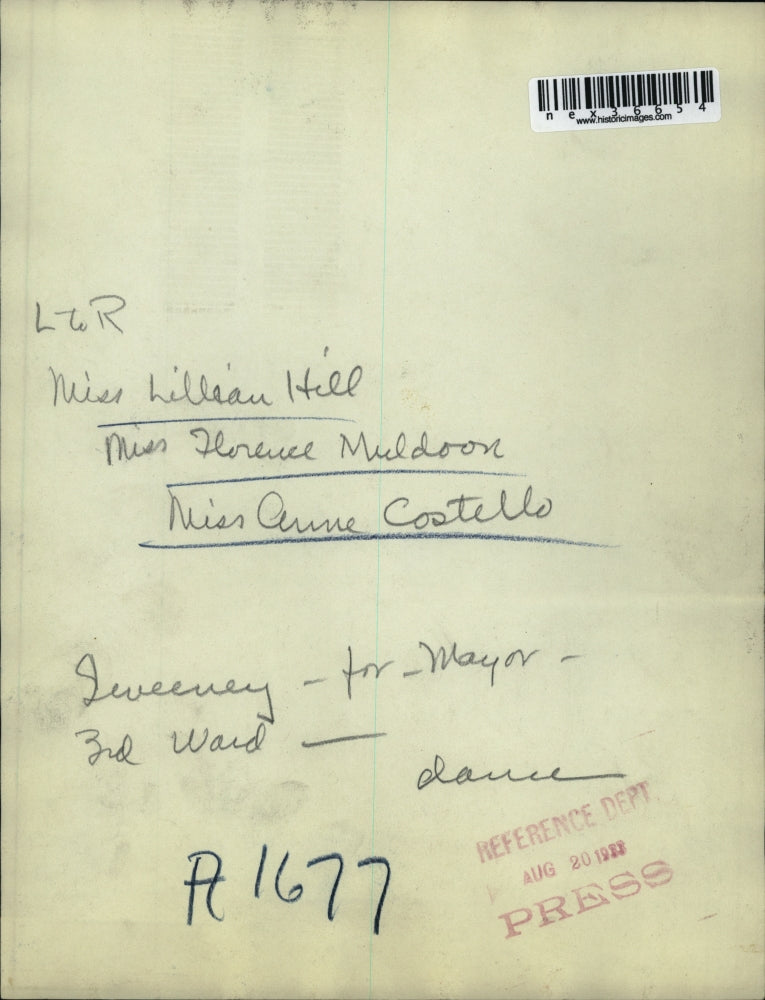 nex36654
www.historicimages.com
L to R
Miss Lillian Hill
Miss Florence Muldoon
Miss Anne Costello
Sweeney - for - Mayor -
3rd Ward —
dance
REFERENCE DEPT.
AUG 20
PRESS
A1677